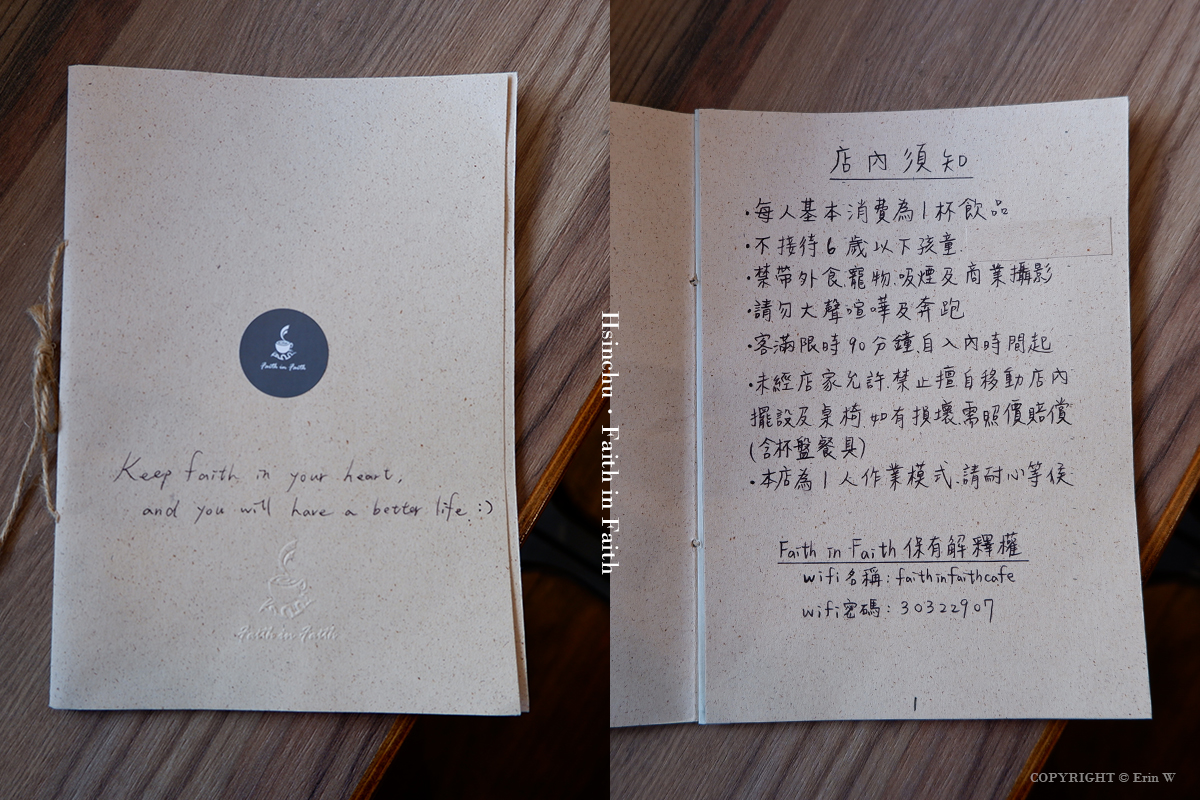 Faith in Faith
Keep faith in your heart,
and you will have a better life :)
Faith in Faith
Hsinchu · Faith in Faith
店內須知
·每人基本消費為1杯飲品
·不接待6歲以下孩童
·禁帶外食.寵物.吸煙及商業攝影
·請勿大聲喧嘩及奔跑
·客滿限時90分鐘.自入內時間起
·未經店家允許.禁止擅自移動店內
擺設及桌椅.如有損壞.需照價賠償
(含杯盤餐具)
·本店為1人作業模式.請耐心等候
Faith in Faith 保有解釋權
wifi名稱: faithinfaithcafe
wifi密碼: 30322907
1
COPYRIGHT © Erin W